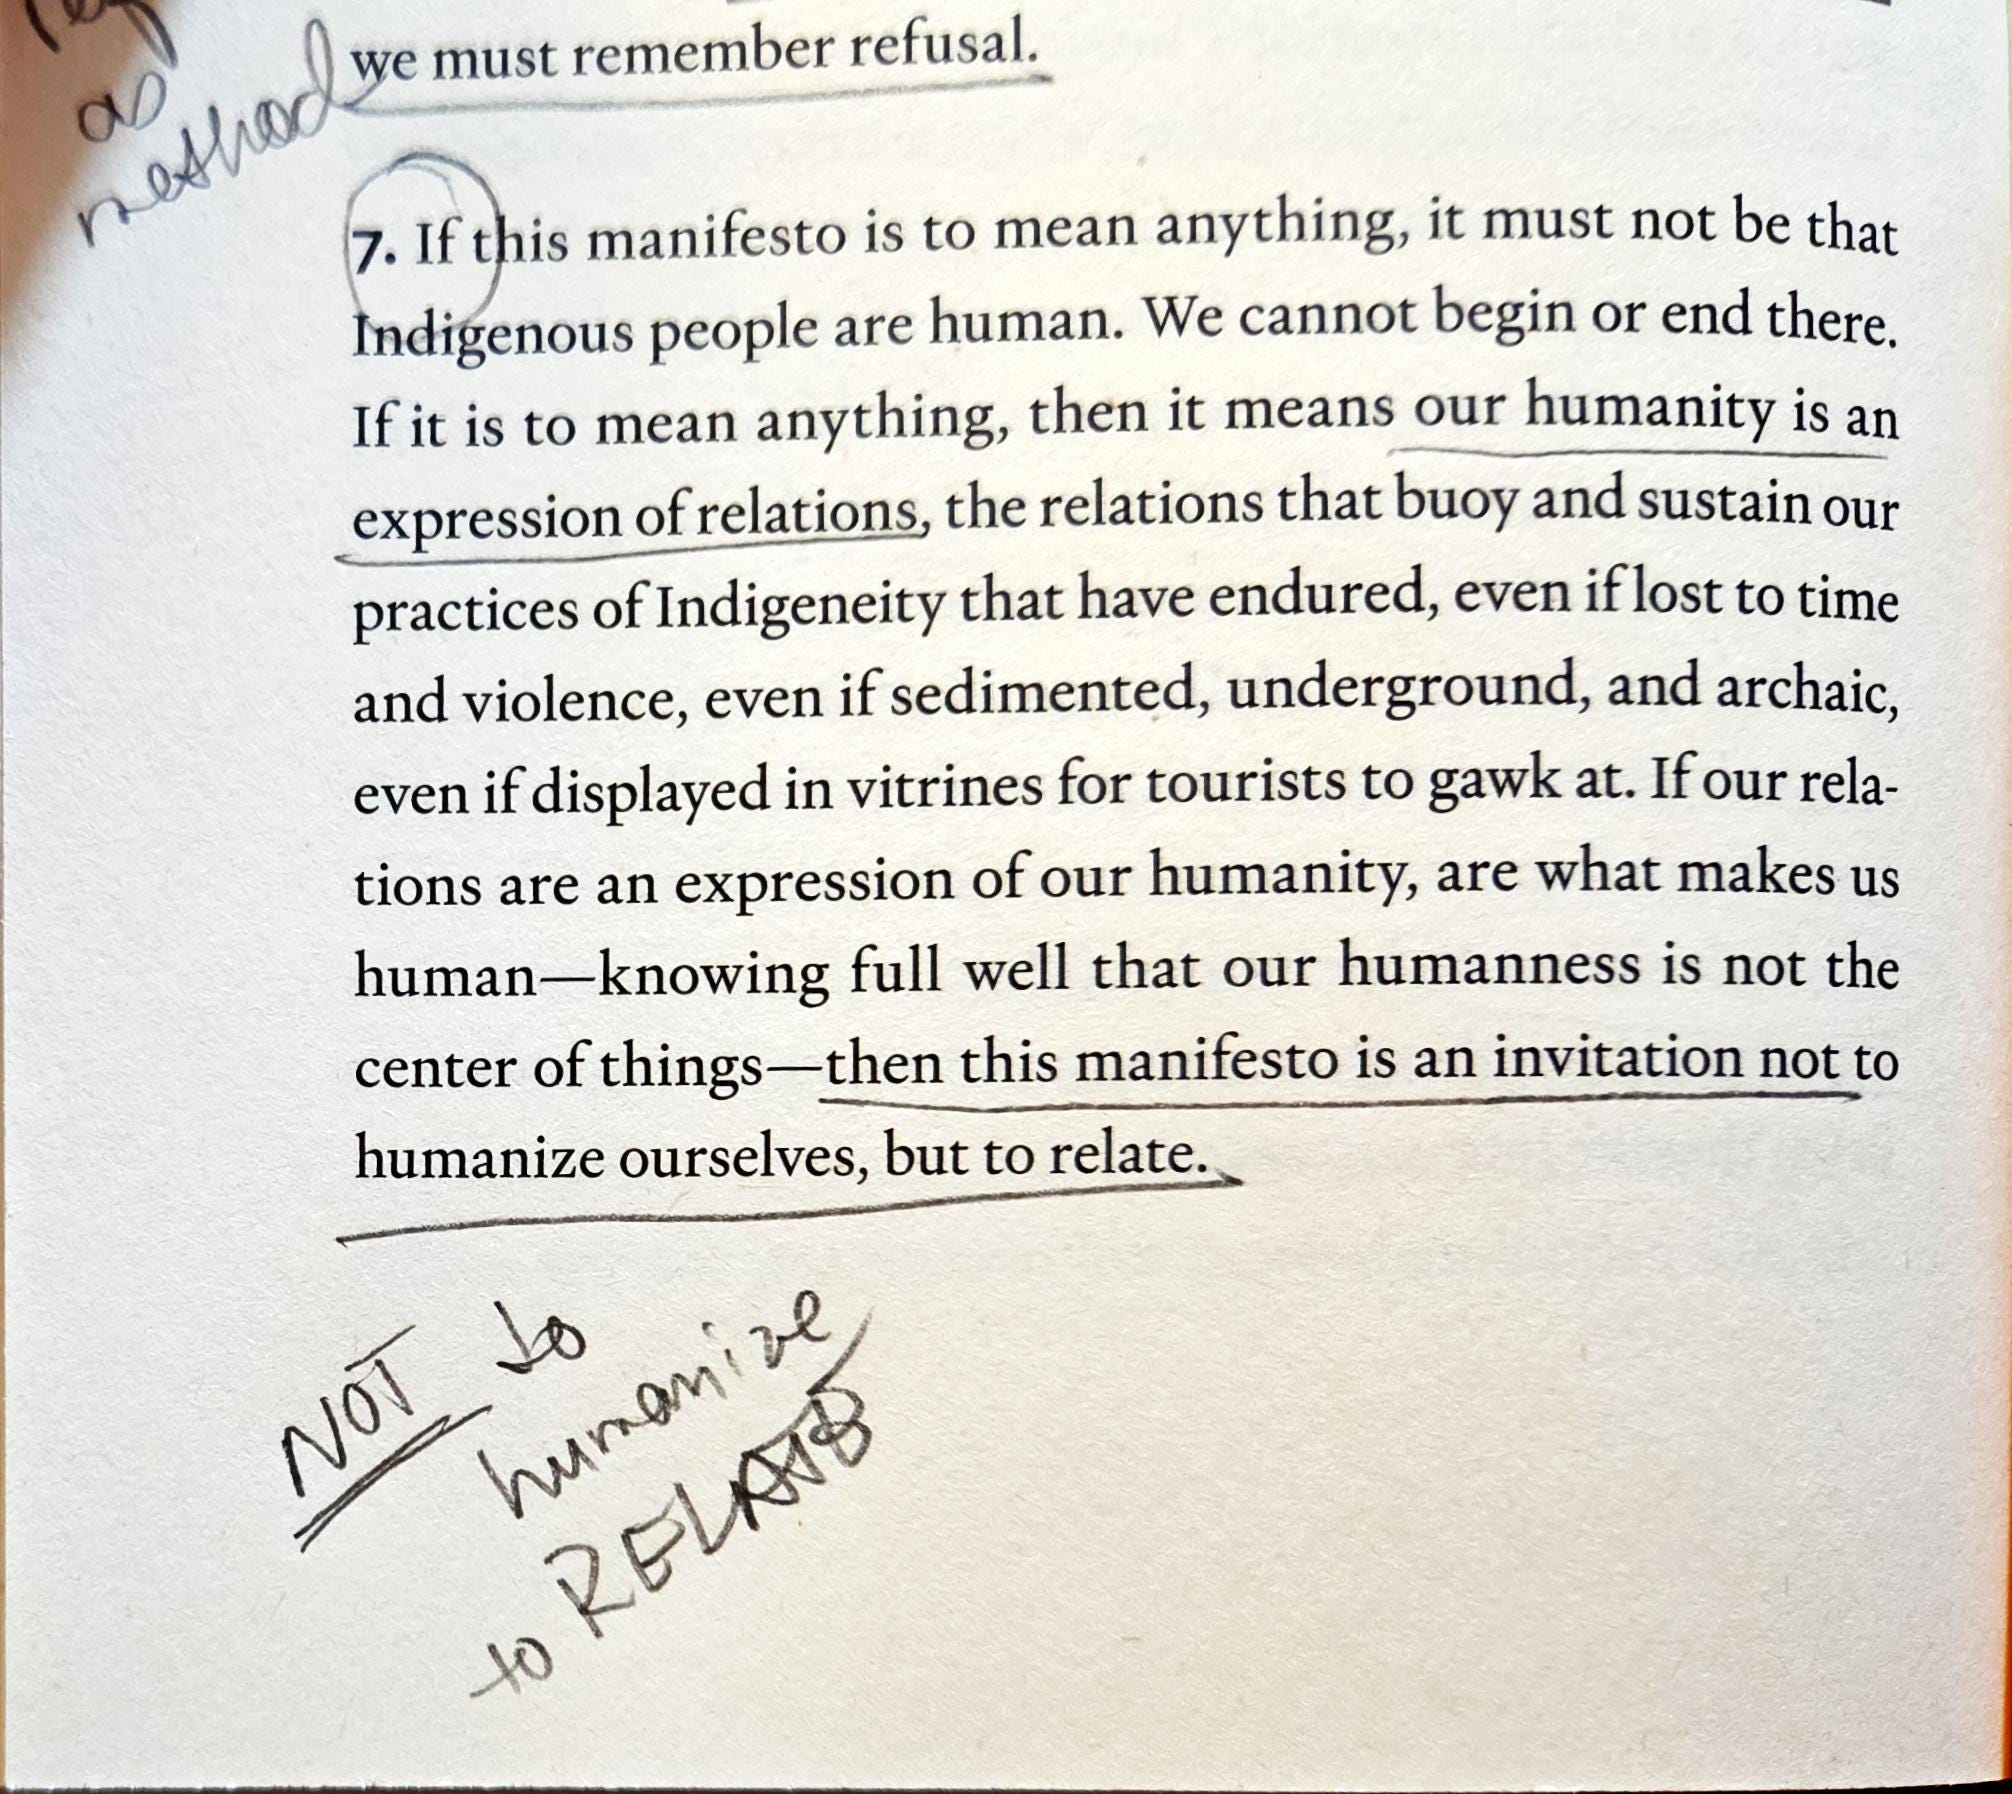 as
method
we must remember refusal.
7. If this manifesto is to mean anything, it must not be that
Indigenous people are human. We cannot begin or end there.
If it is to mean anything, then it means our humanity is an
expression of relations, the relations that buoy and sustain our
practices of Indigeneity that have endured, even if lost to time
and violence, even if sedimented, underground, and archaic,
even if displayed in vitrines for tourists to gawk at. If our rela-
tions are an expression of our humanity, are what makes us
human—knowing full well that our humanness is not the
center of things—then this manifesto is an invitation not to
humanize ourselves, but to relate.
NOT to
humanize
to RELATE